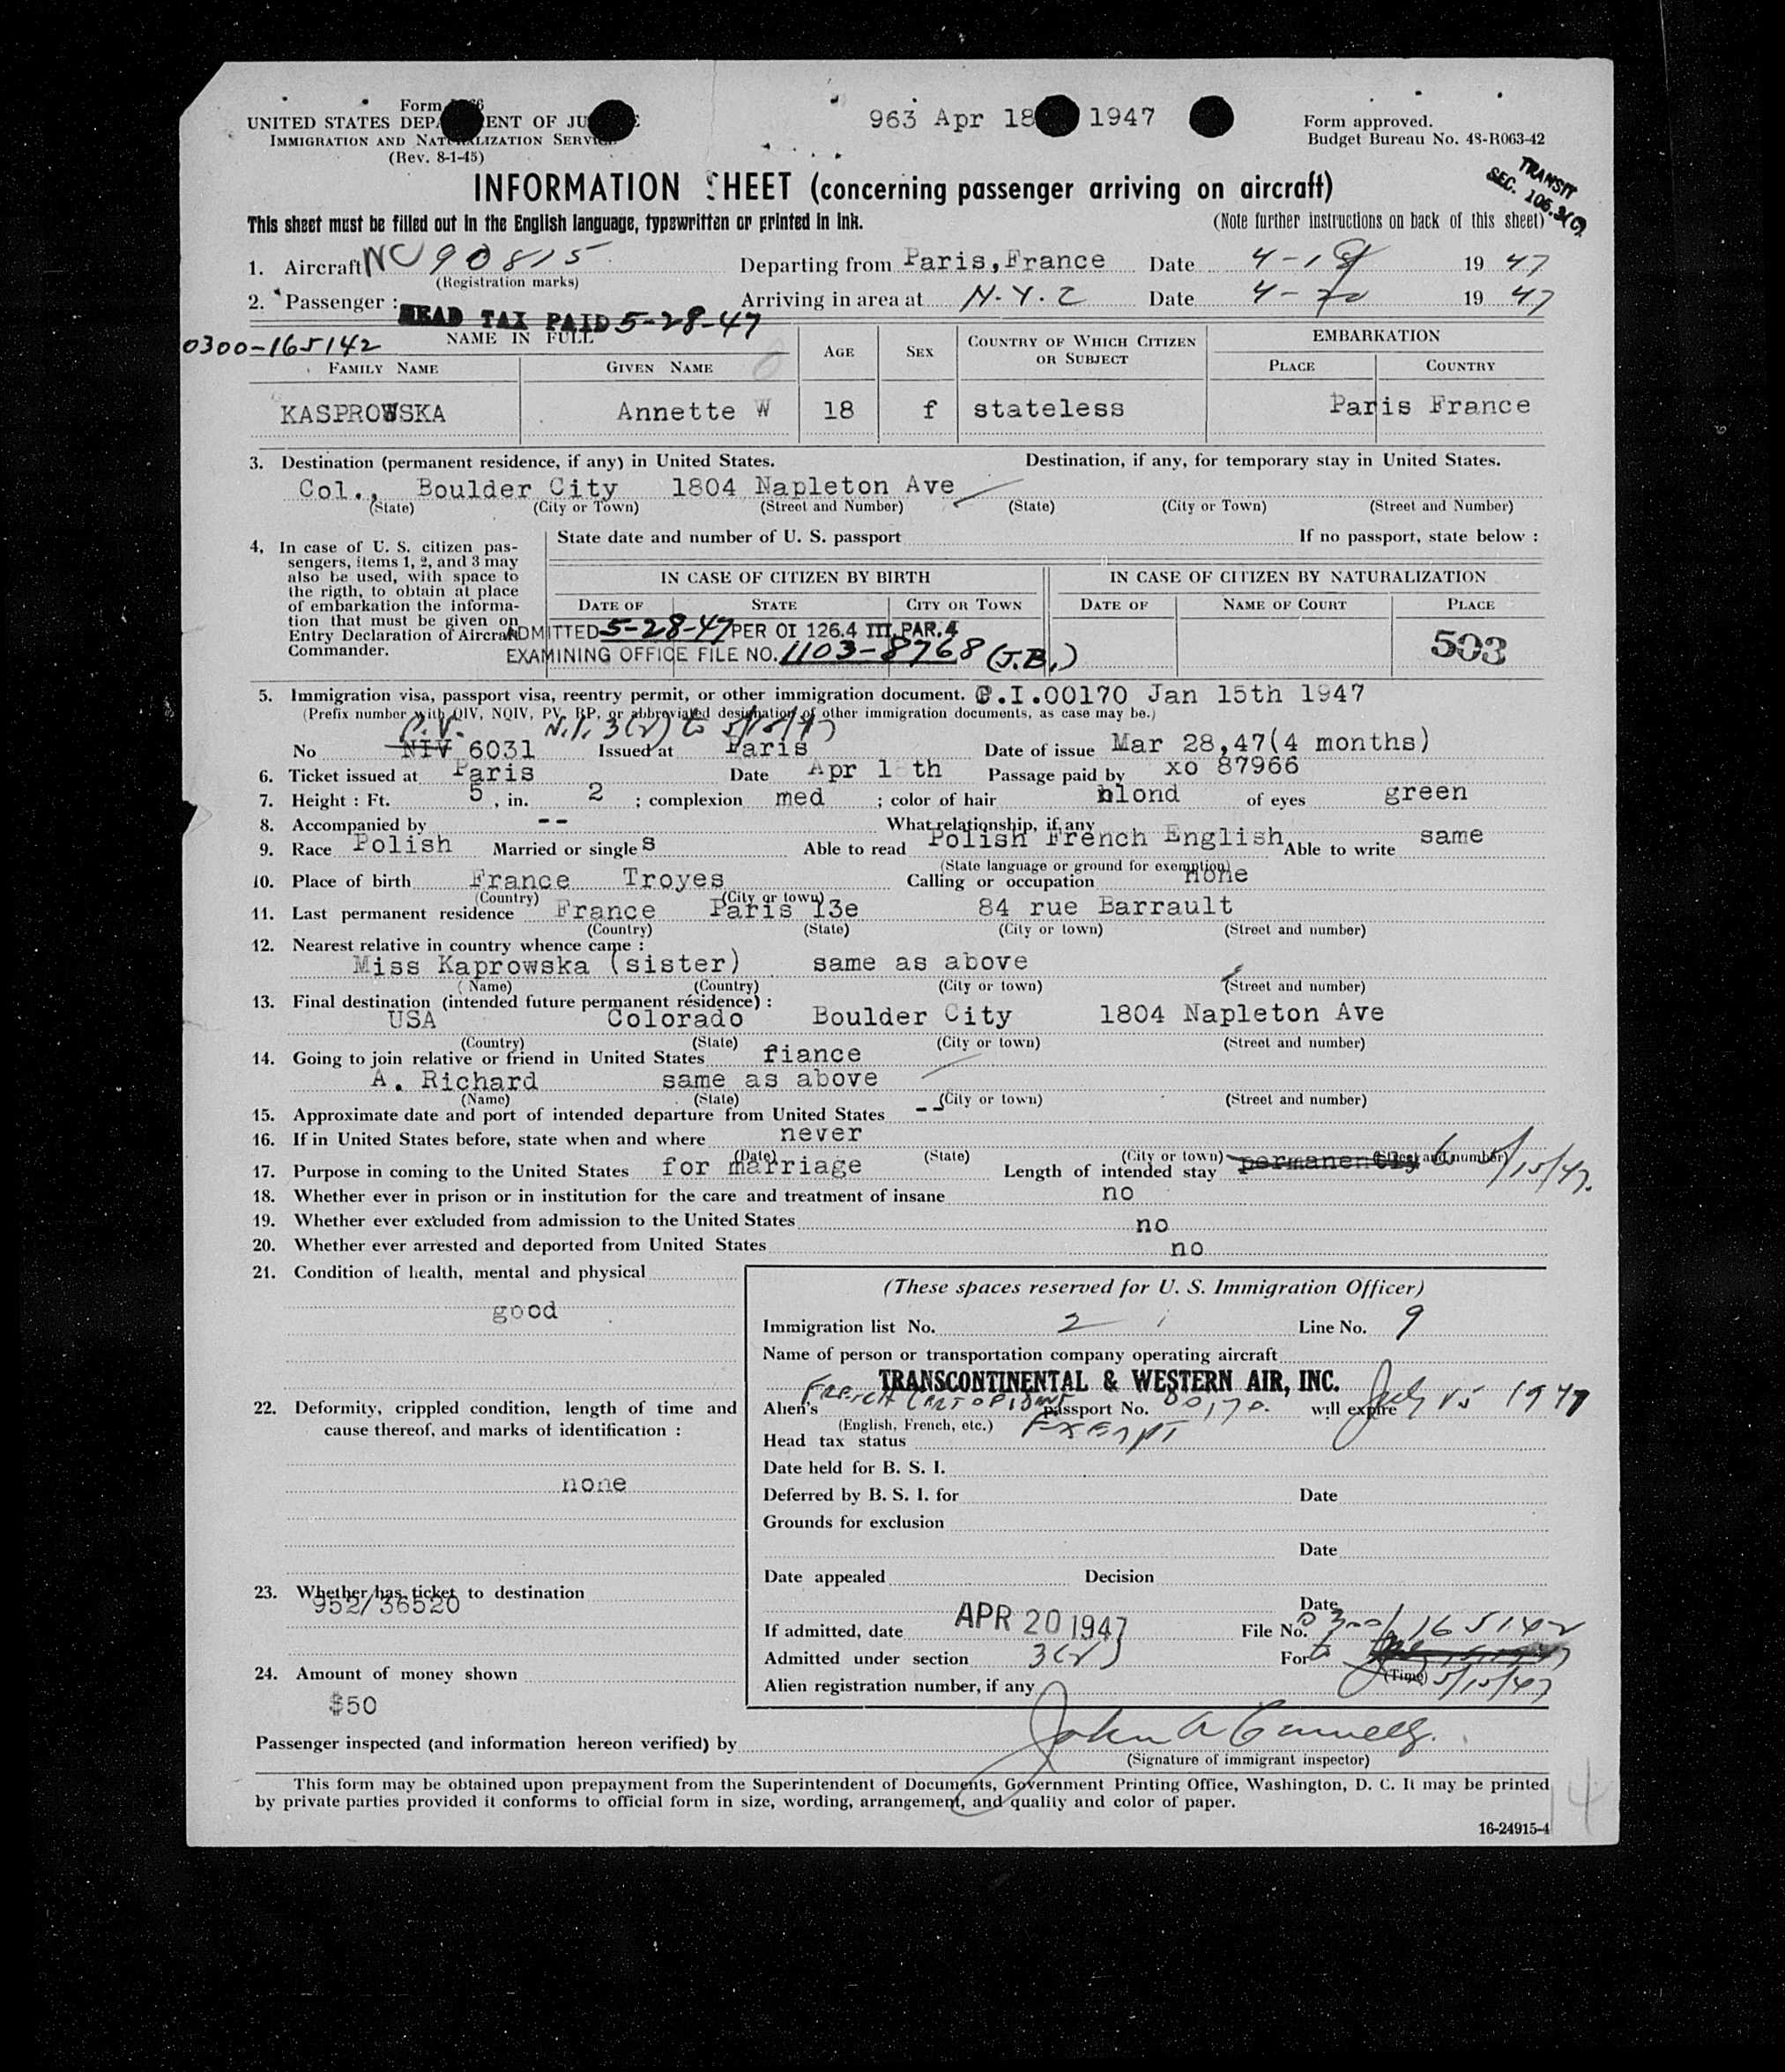 Form
963 Apr 18 1947
Form approved.
Budget Bureau No. 48-R063-42
UNITED STATES DEPARTMENT OF JUSTICE
IMMIGRATION AND NATURALIZATION SERVICE
(Rev. 8-1-45)
TRANSIT
SEC. 106.3(C)
INFORMATION SHEET (concerning passenger arriving on aircraft)
This sheet must be filled out in the English language, typewritten or printed in ink.
(Note further instructions on back of this sheet)
1. Aircraft NC 90815 Departing from Paris,France Date 4-18 1947
(Registration marks)
2. Passenger: Arriving in area at N.Y.C Date 4-20 1947
HEAD TAX PAID 5-28-47
0300-165142
NAME IN FULL
FAMILY NAME GIVEN NAME AGE SEX COUNTRY OF WHICH CITIZEN OR SUBJECT EMBARKATION PLACE COUNTRY
KASPROWSKA Annette W 18 f stateless Paris France
3. Destination (permanent residence, if any) in United States. Destination, if any, for temporary stay in United States.
Col., Boulder City 1804 Napleton Ave
(State) (City or Town) (Street and Number) (State) (City or Town) (Street and Number)
4. In case of U. S. citizen pas-
sengers, items 1, 2, and 3 may
also be used, with space to
the rigth, to obtain at place
of embarkation the informa-
tion that must be given on
Entry Declaration of Aircraft
Commander.
State date and number of U. S. passport If no passport, state below :
IN CASE OF CITIZEN BY BIRTH IN CASE OF CITIZEN BY NATURALIZATION
DATE OF STATE CITY OR TOWN DATE OF NAME OF COURT PLACE
ADMITTED 5-28-47 PER OI 126.4 III, PAR. 4
EXAMINING OFFICE FILE NO. 1103-8768 (J.B.)
503
5. Immigration visa, passport visa, reentry permit, or other immigration document. C.I.00170 Jan 15th 1947
(Prefix number with QIV, NQIV, PV, RP, or abbreviated designation of other immigration documents, as case may be.)
P.V. N.I. 3(2) to 5/15/47
No NIV 6031 Issued at Paris Date of issue Mar 28,47(4 months)
6. Ticket issued at Paris Date Apr 1 th Passage paid by xo 87966
7. Height : Ft. 5 , in. 2 ; complexion med ; color of hair blond of eyes green
8. Accompanied by -- What relationship, if any
9. Race Polish Married or single s Able to read Polish French English Able to write same
(State language or ground for exemption)
10. Place of birth France Troyes Calling or occupation none
(Country) (City or town)
11. Last permanent residence France Paris 13e 84 rue Barrault
(Country) (State) (City or town) (Street and number)
12. Nearest relative in country whence came :
Miss Kaprowska (sister) same as above
(Name) (Country) (City or town) (Street and number)
13. Final destination (intended future permanent résidence) :
USA Colorado Boulder City 1804 Napleton Ave
(Country) (State) (City or town) (Street and number)
14. Going to join relative or friend in United States fiance
A. Richard same as above
(Name) (State) (City or town) (Street and number)
15. Approximate date and port of intended departure from United States --
16. If in United States before, state when and where never
(Date) (State) (City or town) (Street and number)
17. Purpose in coming to the United States for marriage Length of intended stay permanently to 5/15/47.
18. Whether ever in prison or in institution for the care and treatment of insane no
19. Whether ever excluded from admission to the United States no
20. Whether ever arrested and deported from United States no
21. Condition of health, mental and physical
good
22. Deformity, crippled condition, length of time and
cause thereof, and marks of identification :
none
23. Whether has ticket to destination
952/36520
24. Amount of money shown
$50
(These spaces reserved for U. S. Immigration Officer)
Immigration list No. 2 Line No. 9
Name of person or transportation company operating aircraft
TRANSCONTINENTAL & WESTERN AIR, INC.
Alien's French Cert of Ident passport No. 00170. will expire July 15 1947
(English, French, etc.)
Head tax status Exempt
Date held for B. S. I.
Deferred by B. S. I. for Date
Grounds for exclusion
Date
Date appealed Decision
Date
If admitted, date APR 20 1947 File No. 0300/165142
Admitted under section 3(2) For to
(Time) 5/15/47
Alien registration number, if any
Passenger inspected (and information hereon verified) by John A
(Signature of immigrant inspector)
This form may be obtained upon prepayment from the Superintendent of Documents, Government Printing Office, Washington, D. C. It may be printed
by private parties provided it conforms to official form in size, wording, arrangement, and quality and color of paper.
16-24915-4
14